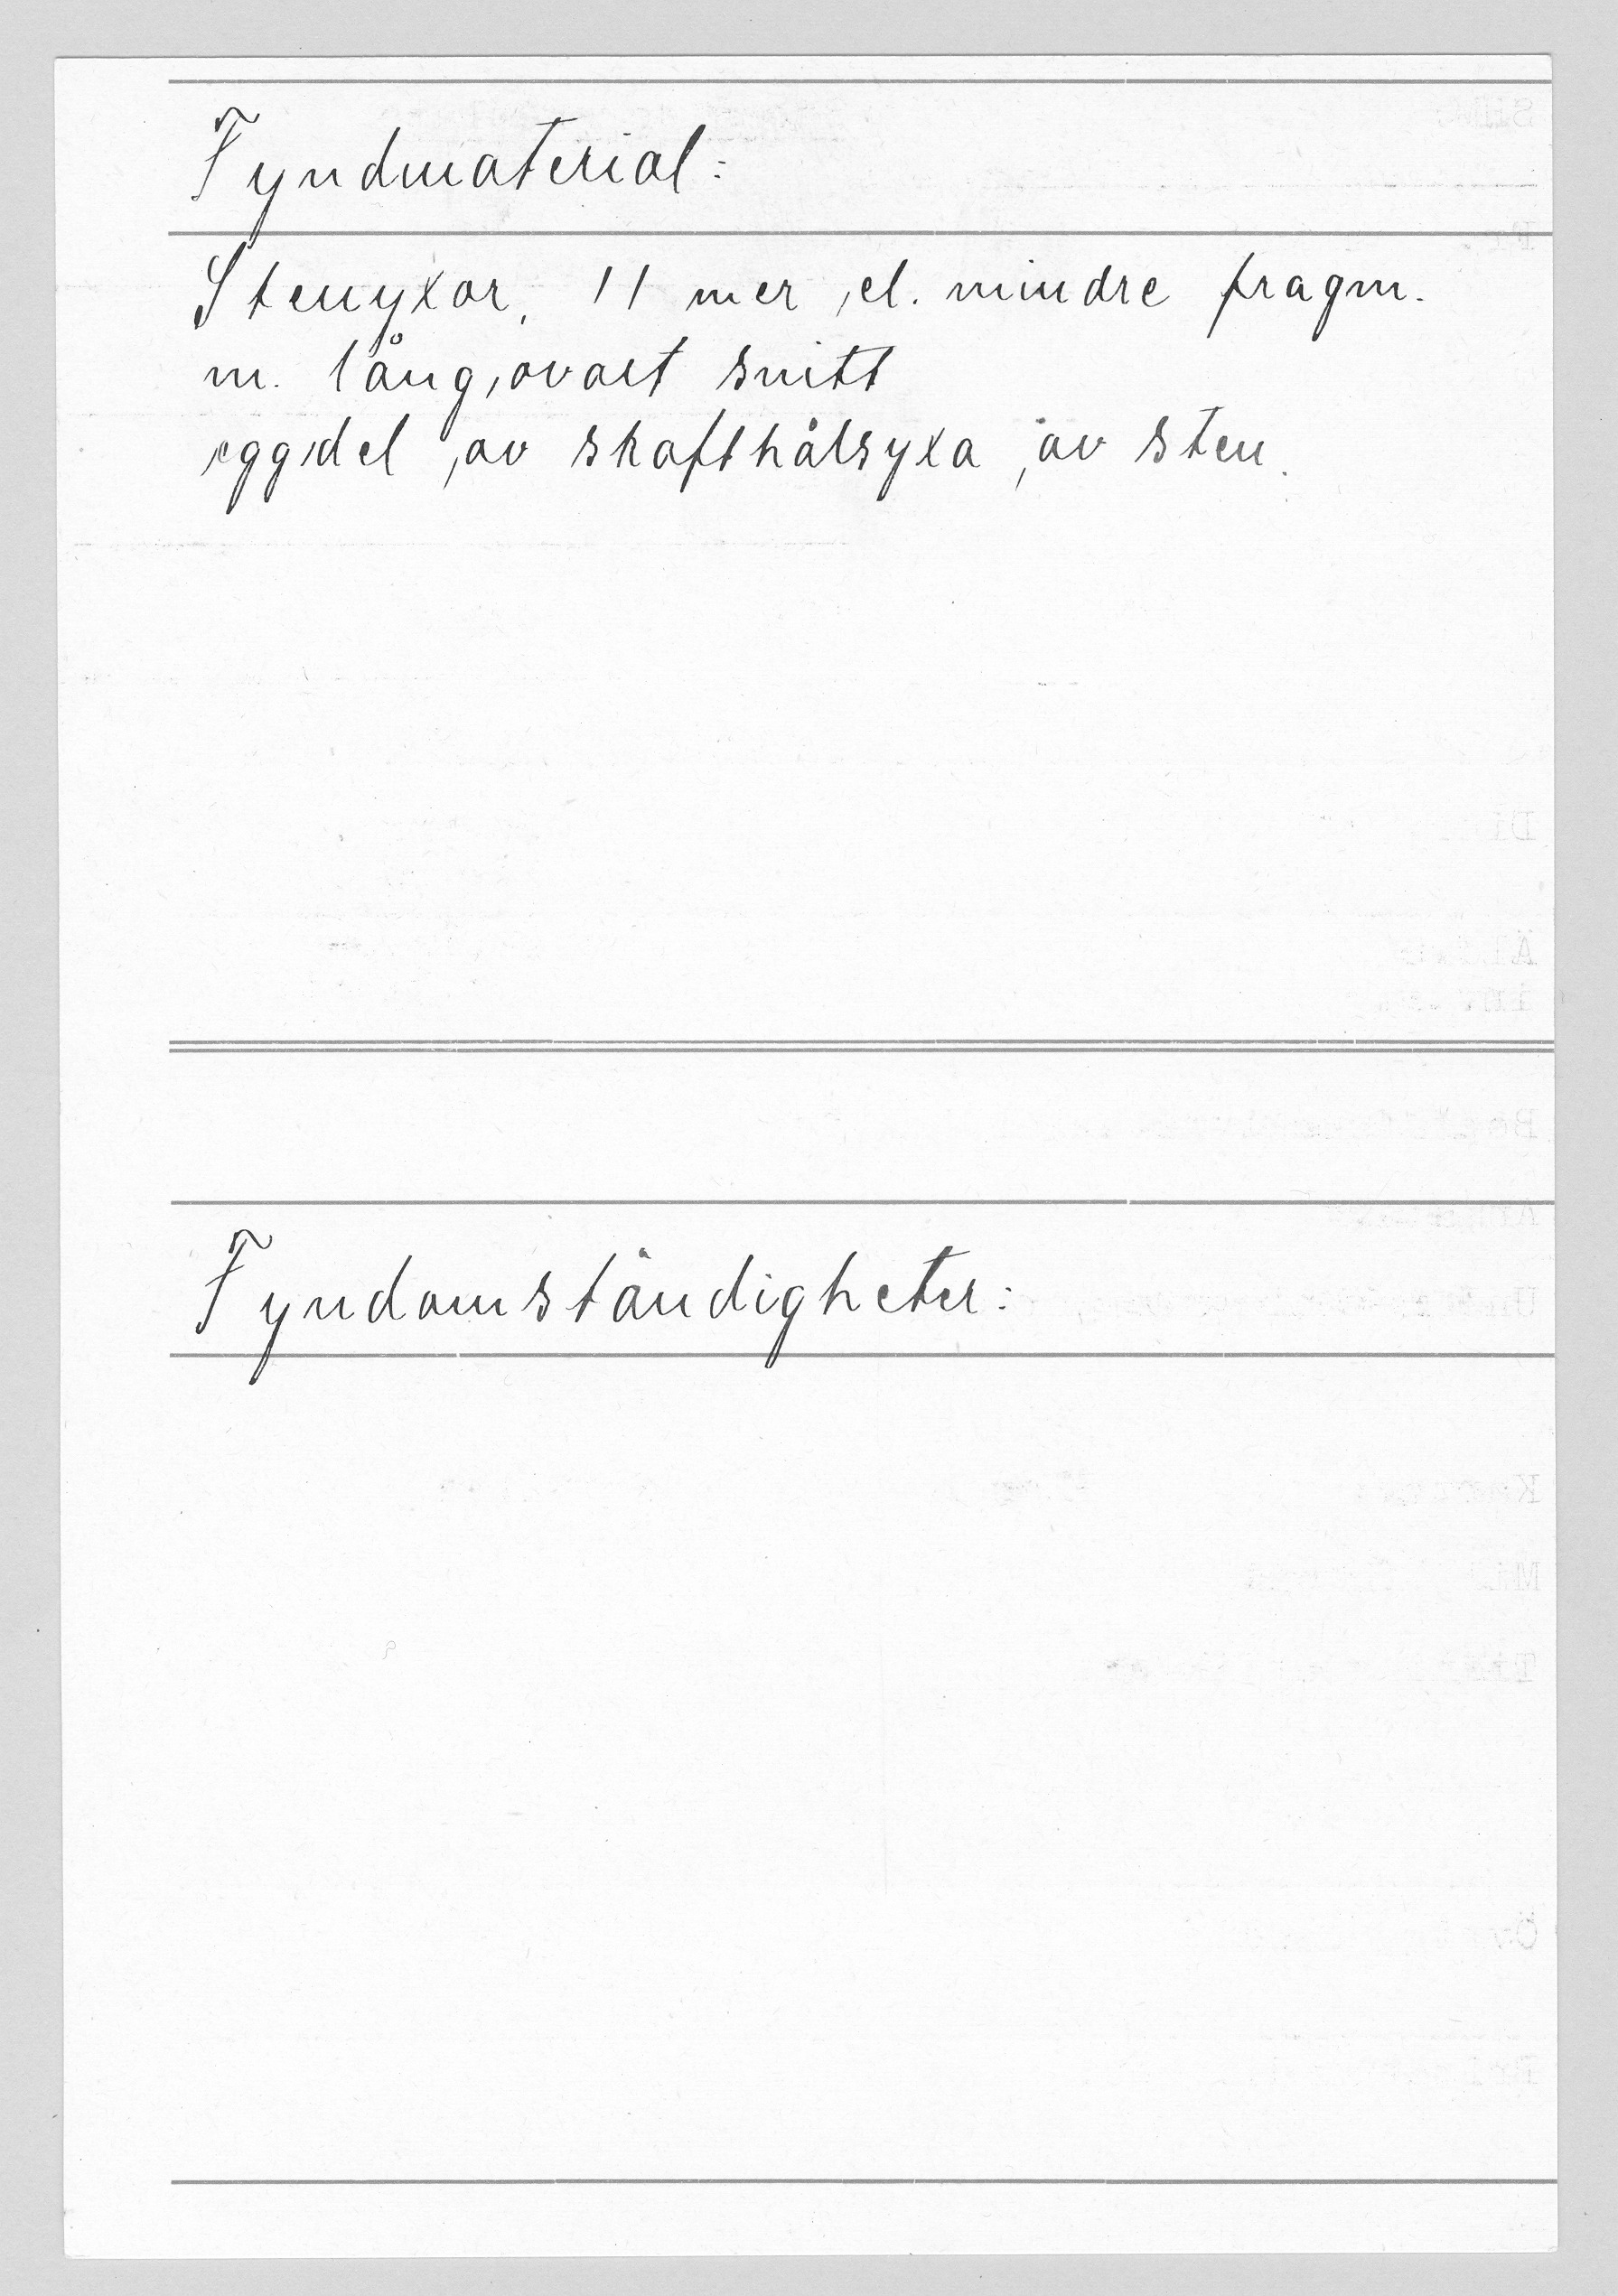 Fyndmaterial:
Stenyxor, 11 mer el. mindre fragm.
m. långovalt snitt
eggdel av skafthålsyxa av sten.
Fyndomständigheter: